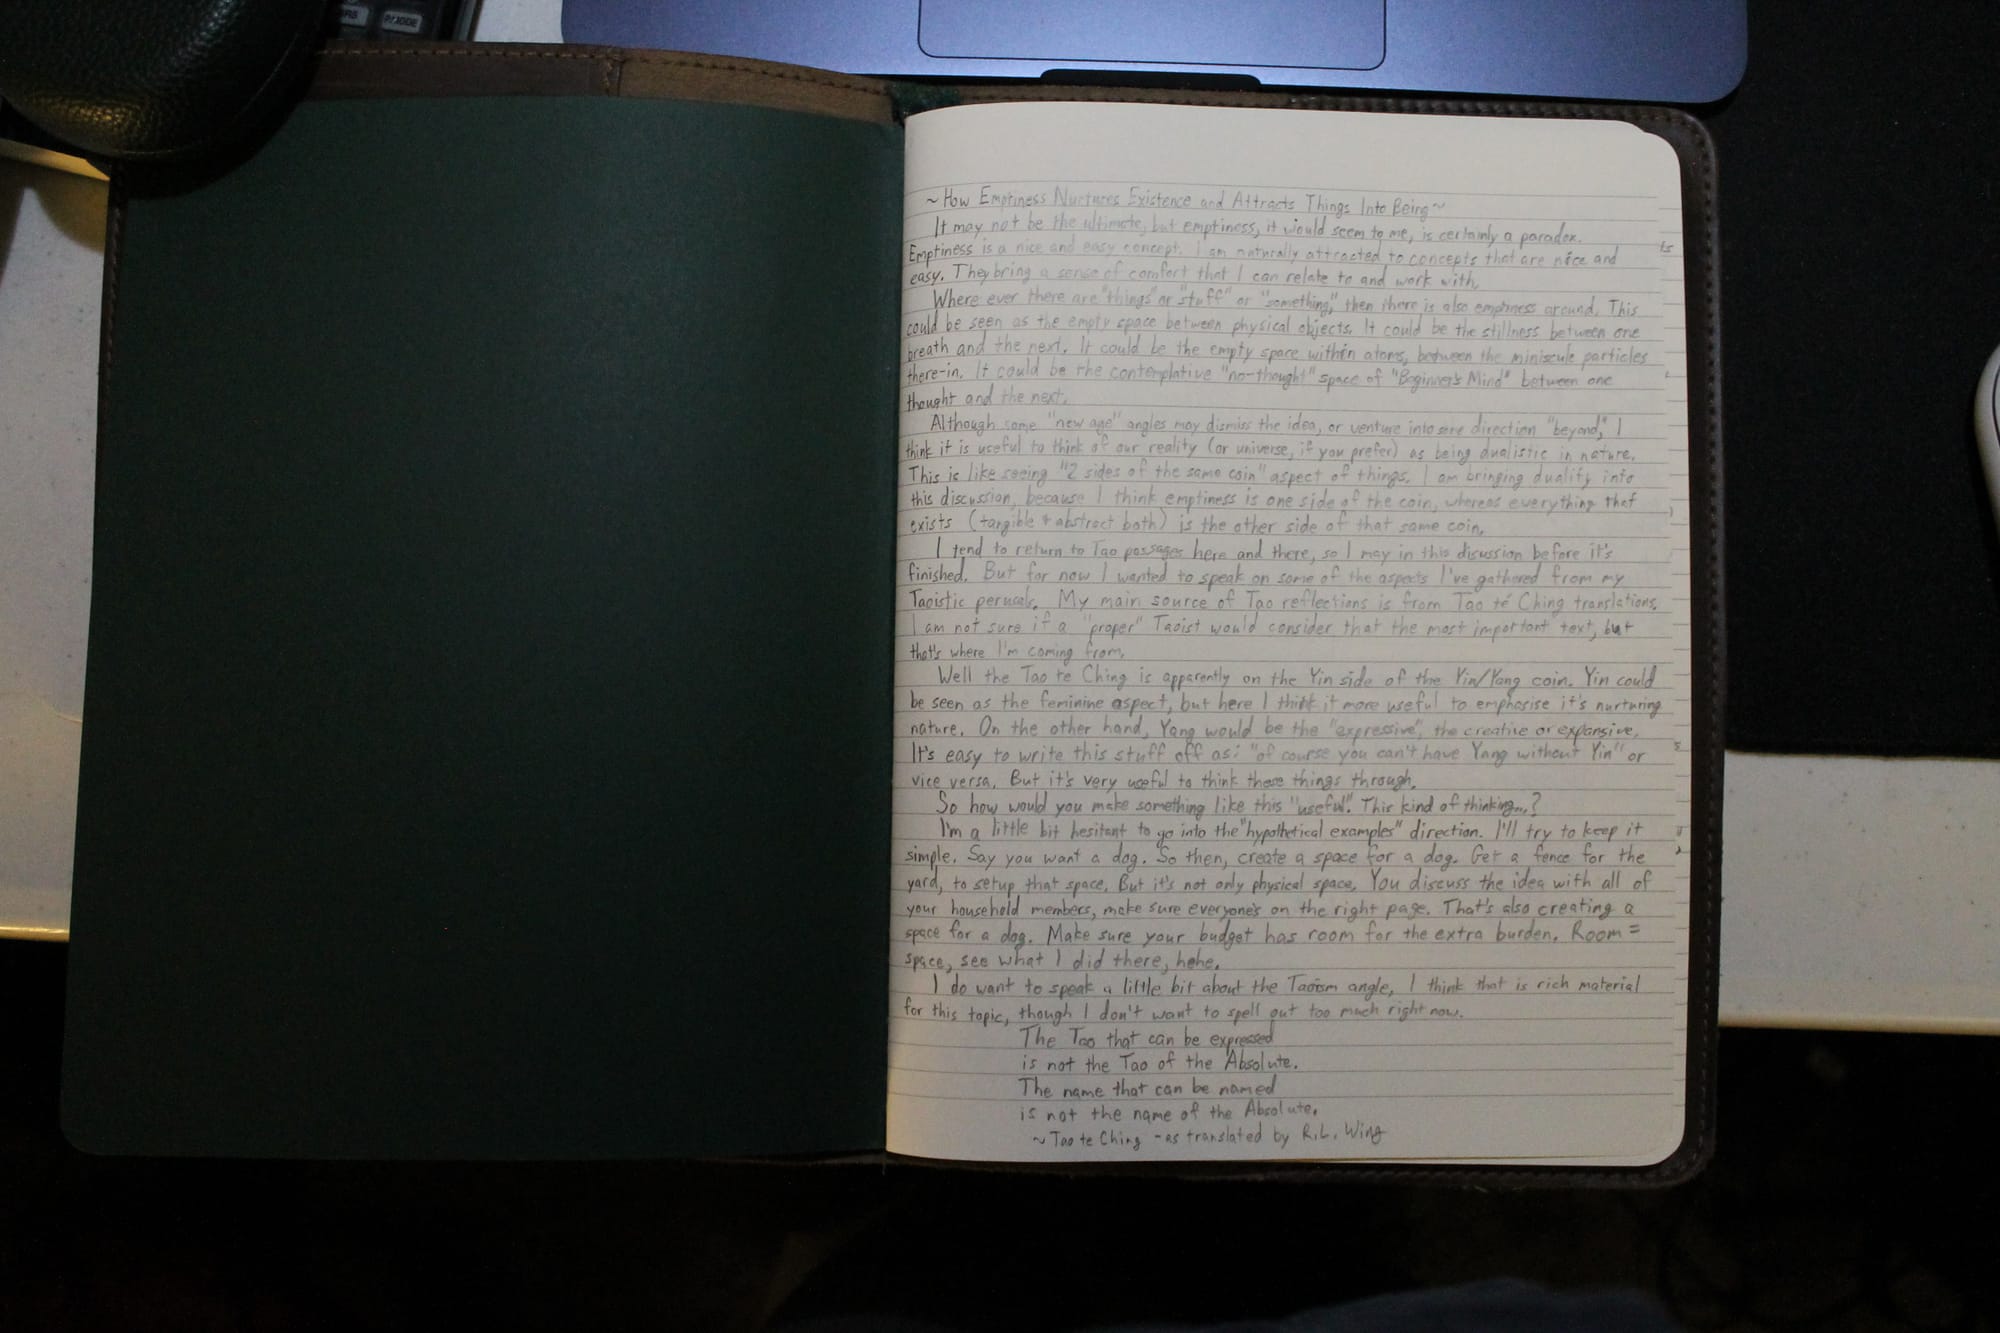 P/MODE
~ How Emptiness Nurtures Existence and Attracts Things Into Being ~
It may not be the ultimate, but emptiness, it would seem to me, is certainly a paradox.
Emptiness is a nice and easy concept. I am naturally attracted to concepts that are nice and
easy. They bring a sense of comfort that I can relate to and work with.
Where ever there are "things" or "stuff" or "something," then there is also emptiness around. This
could be seen as the empty space between physical objects. It could be the stillness between one
breath and the next. It could be the empty space within atoms, between the miniscule particles
there-in. It could be the contemplative "no-thought" space of "Beginner's Mind" between one
thought and the next.
Although some "new age" angles may dismiss the idea, or venture into some direction "beyond," I
think it is useful to think of our reality (or universe, if you prefer) as being dualistic in nature.
This is like seeing "2 sides of the same coin" aspect of things. I am bringing duality into
this discussion, because I think emptiness is one side of the coin, whereas everything that
exists (tangible & abstract both) is the other side of that same coin.
I tend to return to Tao passages here and there, so I may in this disussion before it's
finished. But for now I wanted to speak on some of the aspects I've gathered from my
Taoistic perusals. My main source of Tao reflections is from Tao té Ching translations.
I am not sure if a "proper" Taoist would consider that the most important text, but
that's where I'm coming from.
Well the Tao te Ching is apparently on the Yin side of the Yin/Yang coin. Yin could
be seen as the feminine aspect, but here I think it more useful to emphasise it's nurturing
nature. On the other hand, Yang would be the "expressive", the creative or expansive.
It's easy to write this stuff off as: "of course you can't have Yang without Yin" or
vice versa. But it's very useful to think these things through.
So how would you make something like this "useful". This kind of thinking...?
I'm a little bit hesitant to go into the "hypothetical examples" direction. I'll try to keep it
simple. Say you want a dog. So then, create a space for a dog. Get a fence for the
yard, to setup that space. But it's not only physical space. You discuss the idea with all of
your household members, make sure everyone's on the right page. That's also creating a
space for a dog. Make sure your budget has room for the extra burden. Room =
space, see what I did there, hehe.
I do want to speak a little bit about the Taoism angle, I think that is rich material
for this topic, though I don't want to spell out too much right now.
The Tao that can be expressed
is not the Tao of the Absolute.
The name that can be named
is not the name of the Absolute.
~ Tao te Ching - as translated by R.L. Wing